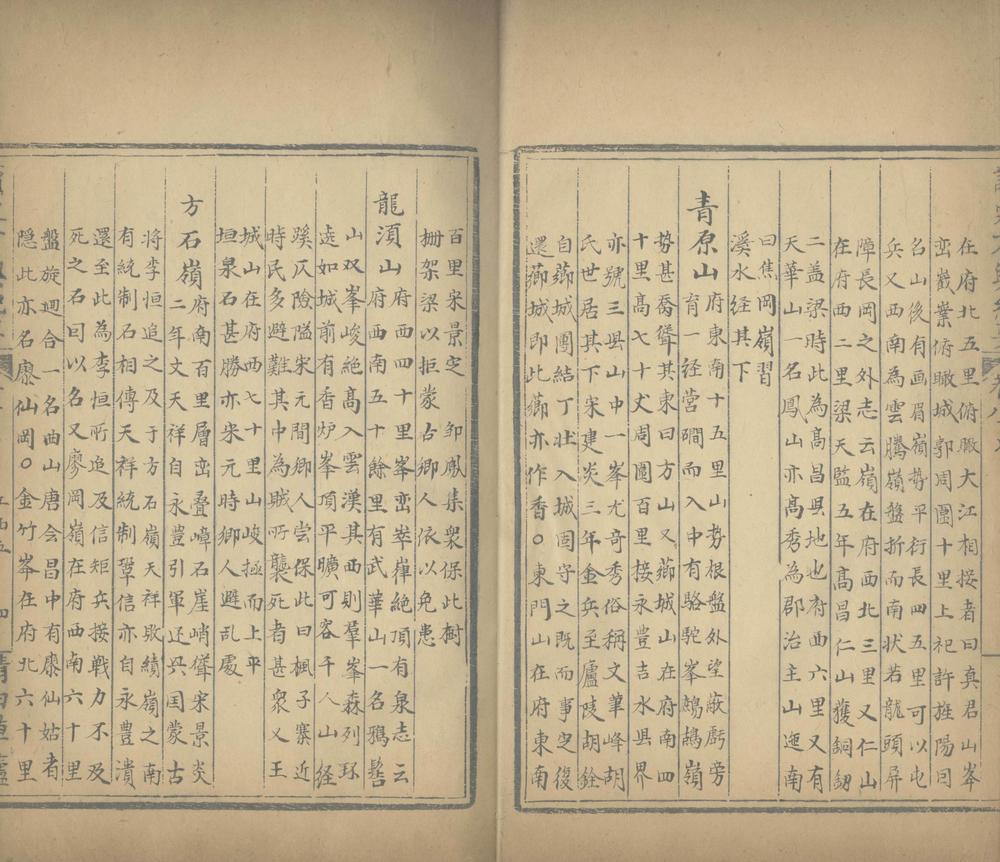 在府北五里俯瞰大江相接者曰真君山峯
巒巀嶪俯瞰城郭周圍十里上祀許旌陽曰
名山後有画眉嶺勢平衍長四五里可以屯
兵又西南為雲騰嶺盤折而南状若龍頭屏
障長岡之外志云嶺在府西北三里又仁山
在府西二里梁天監五年髙昌仁山獲銅劔
二盖梁時此為髙昌县地也府西六里又有
天華山一名鳳山亦髙秀為郡治主山迤南
曰焦岡嶺習
溪水經其下
青原山府東南十五里山势根盤外望蔽虧旁
育一径营磵而入中有駱駝峯鷓鴣嶺
勢甚喬聳其東曰方山又薌城山在府南四
十里髙七十丈周圍百里接永豊吉水县界
亦號三县山中一峯尤竒秀俗稱文華峰胡
氏世居其下宋建炎三年金兵至廬陵胡銓
自薌城團結丁壮入城固守之既而事定復
還薌城即此薌亦作香○東門山在府東南
百里宋景定 邹鳳集衆保此樹
栅架梁以拒蒙古鄉人依以免患
龍湏山府西四十里峯巒崒嵂絶頂有泉志云
山双峯峻絶髙入雲漢其西則羣峯森列环
遶如城前有香炉峯頂平曠可容千人山经
蹊仄險隘宋元間鄉人尝保此曰楓子寨近
時民多避難其中為賊所襲死者甚衆又王
城山在府西七十里山峻極而上平
垣泉石甚勝亦宋元時鄉人避乱處
府西南五十餘里有武華山一名鴉髻
方石嶺府南百里層峦叠嶂石崖峭聳宋景炎
二年文天祥自永豊引軍还兴囯蒙古
將李恒追之及于方石嶺天祥敗績嶺之南
有統制石相傳天祥統制鞏信亦自永豊潰
還至此為李恒所追及信矩兵接戰力不及
死之石曰以名又廖岡嶺在府西南六十里
盤旋廻合一名曲山唐会昌中有廖仙姑者
隠此亦名廖仙岡○金竹峯在府北六十里